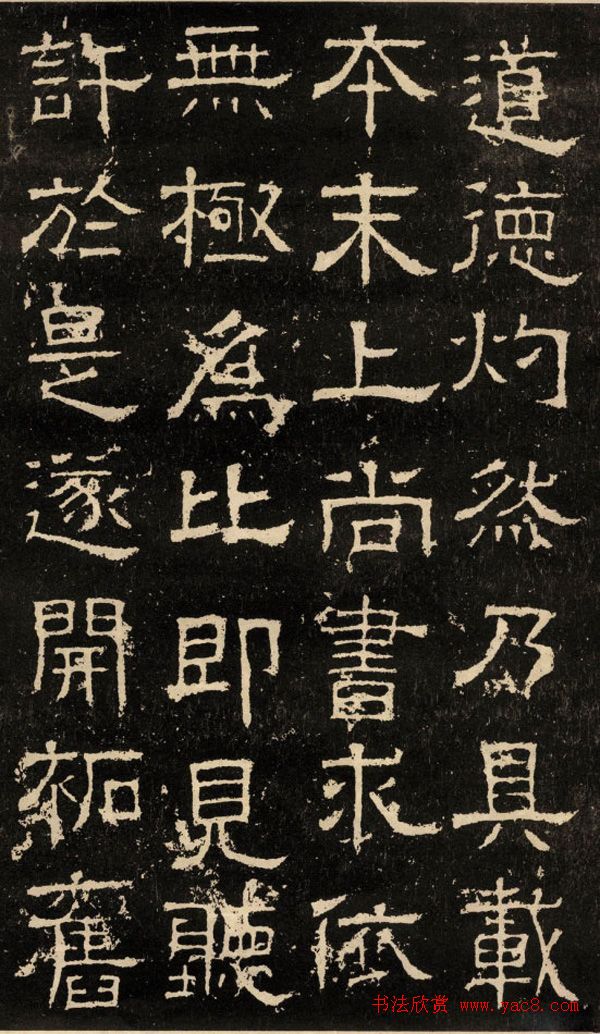 道德灼然乃具載
本末上尚書求依
無極爲比即見聽
許於是遂開袥舊
书法欣赏 www.yac8.com